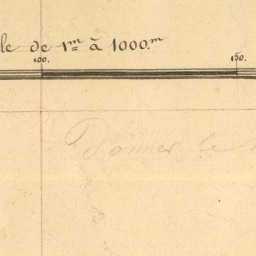 le de 1m à 1000.m
100. 150.
Donner le